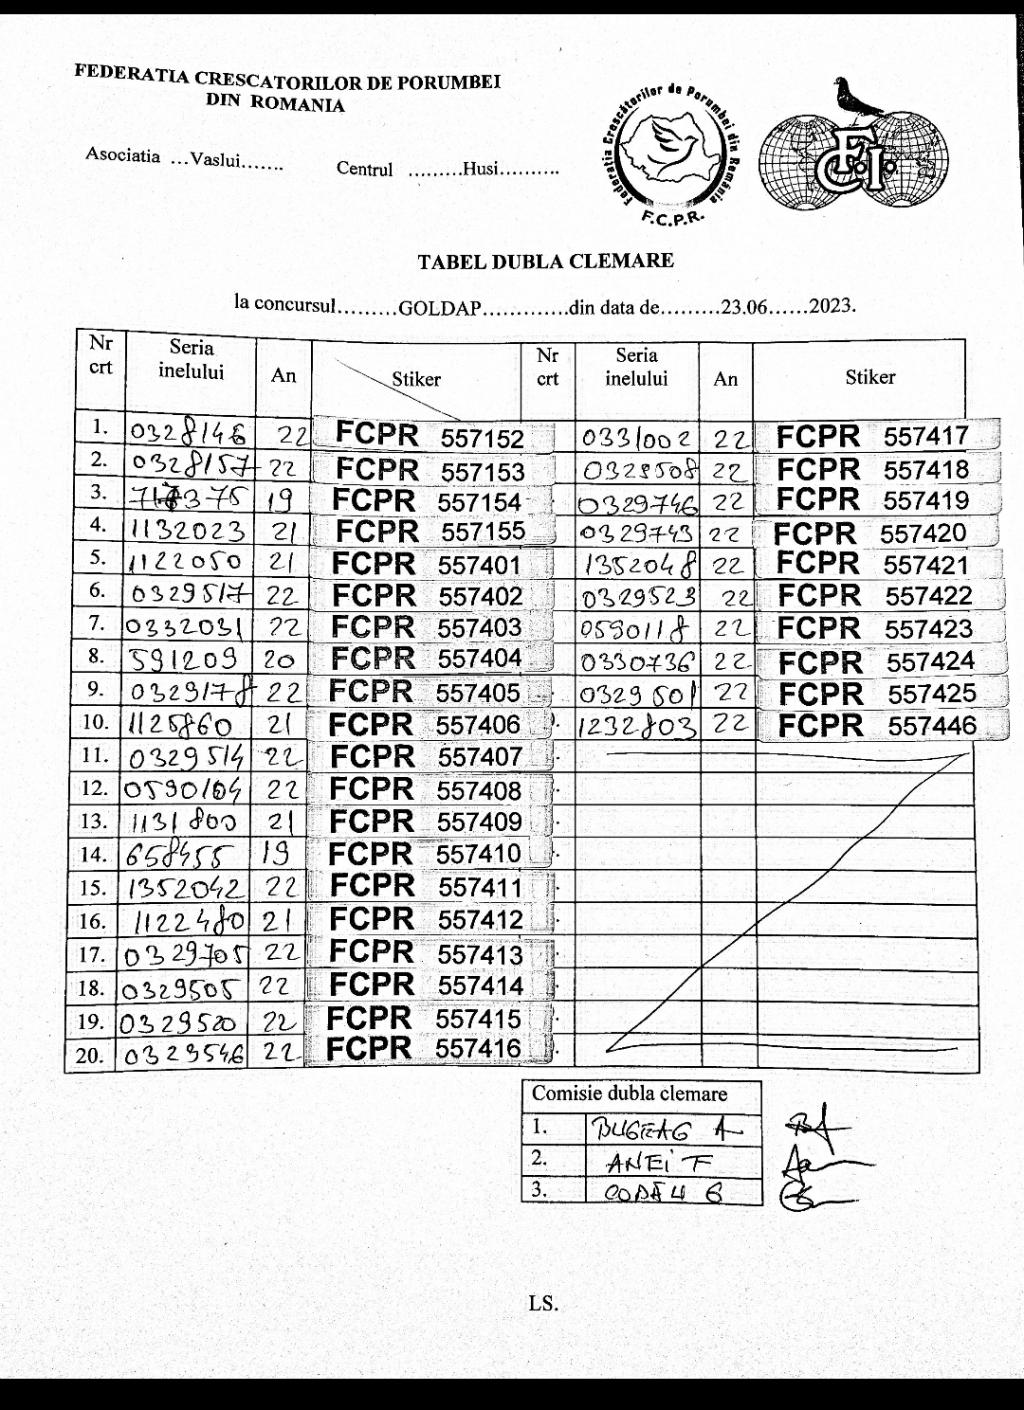 FEDERATIA CRESCATORILOR DE PORUMBEI
DIN ROMANIA
Asociatia ...Vaslui....... Centrul .........Husi..........
Federatia Crescătorilor de Porumbei din România
F.C.P.R.
F.C.I.
TABEL DUBLA CLEMARE
la concursul.........GOLDAP.............din data de.........23.06......2023.
Nr crt Seria inelului An Stiker Nr crt Seria inelului An Stiker
1. 0328146 22 FCPR 557152 0331002 22 FCPR 557417
2. 0328157 22 FCPR 557153 0329508 22 FCPR 557418
3. 19 FCPR 557154 0329746 22 FCPR 557419
4. 1132023 21 FCPR 557155 0329743 22 FCPR 557420
5. 1122050 21 FCPR 557401 1352048 22 FCPR 557421
6. 0329517 22 FCPR 557402 0329523 22 FCPR 557422
7. 0332031 22 FCPR 557403 0590118 22 FCPR 557423
8. 591209 20 FCPR 557404 0330736 22 FCPR 557424
9. 0329178 22 FCPR 557405 0329501 22 FCPR 557425
10. 1125860 21 FCPR 557406 1232803 22 FCPR 557446
11. 0329514 22 FCPR 557407
12. 0590104 22 FCPR 557408
13. 1131800 21 FCPR 557409
14. 658455 19 FCPR 557410
15. 1352042 22 FCPR 557411
16. 1122480 21 FCPR 557412
17. 0329705 22 FCPR 557413
18. 0329505 22 FCPR 557414
19. 0329520 22 FCPR 557415
20. 0329546 22 FCPR 557416
Comisie dubla clemare
1. BUGEAG A
2. ANEI F
3. G
LS.